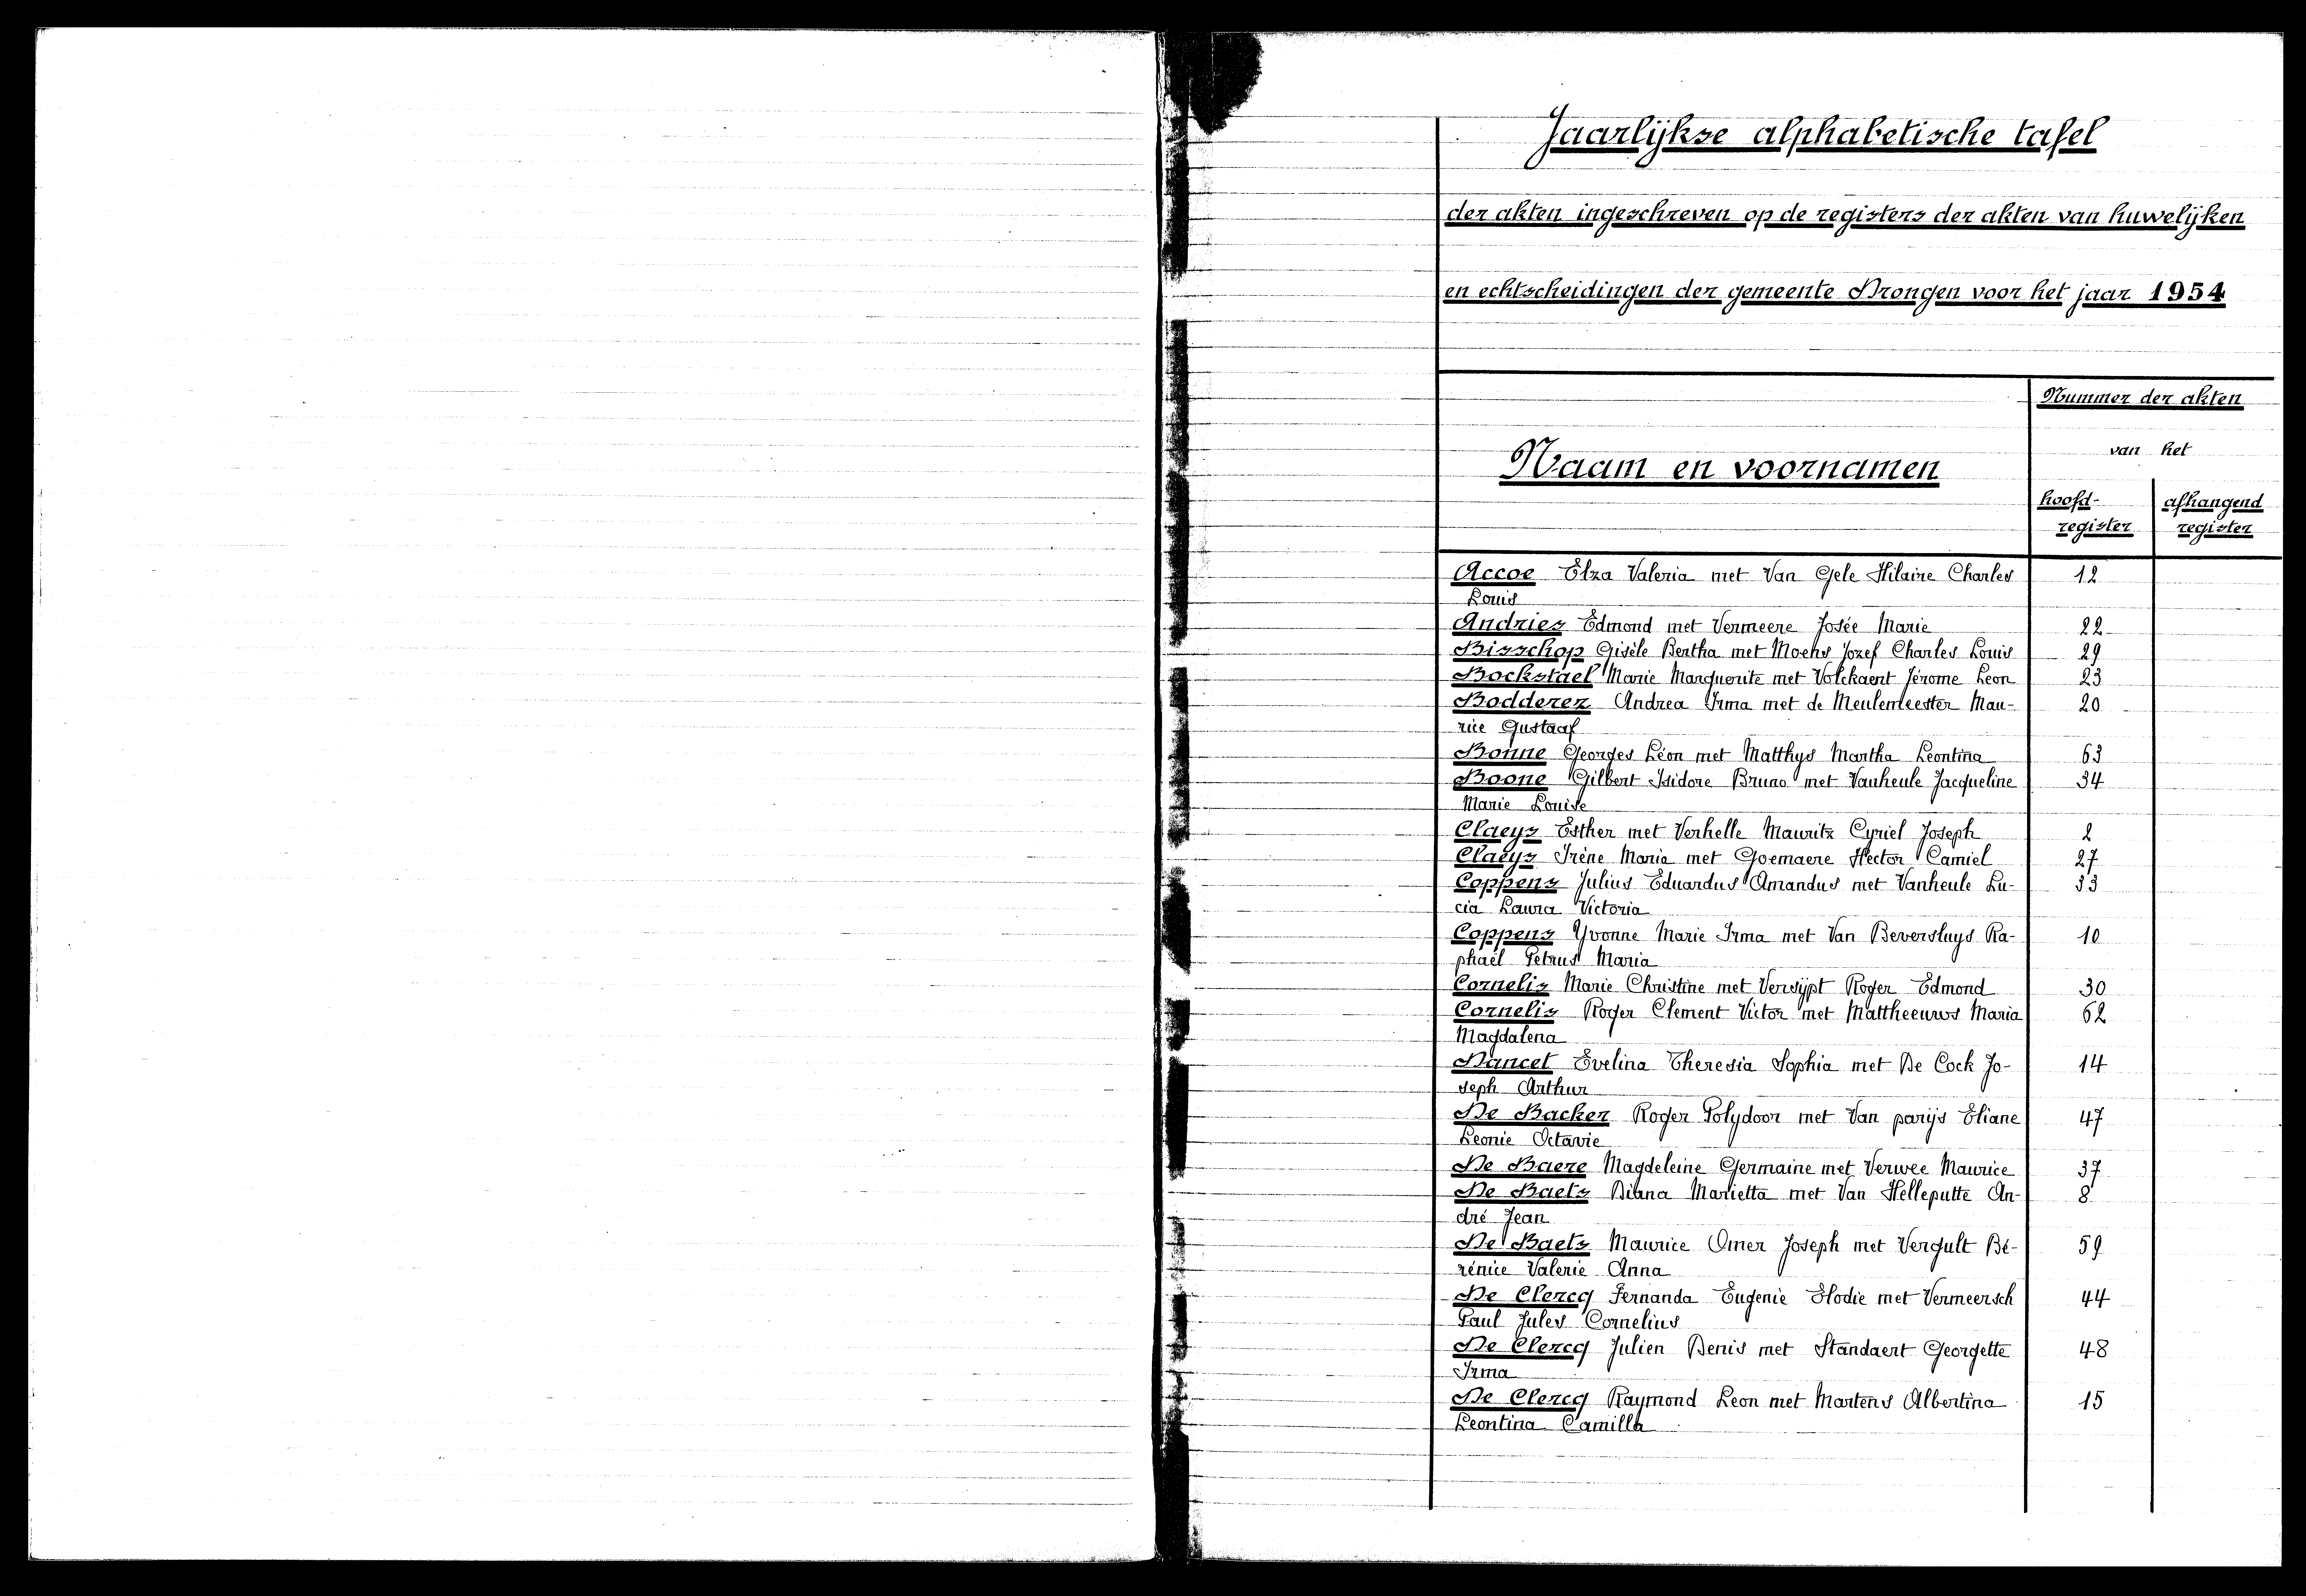 Jaarlijkse alphabetische tafel
der akten ingeschreven op de registers der akten van huwelijken
en echtscheidingen der gemeente Drongen voor het jaar 1954
Nummer der akten
van het
Naam en voornamen
hoofd- afhangend
register register
Accoe Elza Valeria met Van Gele Hilaire Charles 12
Louis
Andries Edmond met Vermeere Josée Marie 22
Bisschop Gisèle Bertha met Moens Jozef Charles Louis 29
Bockstael Marie Marguerite met Volckaert Jérome Leon 23
Bodderez Andrea Irma met de Meulemeester Mau- 20
rice Gustaaf
Bonne Georges Léon met Matthys Martha Leontina 63
Boone Gilbert Isidore Bruno met Vanheule Jacqueline 34
Marie Louise
Claeys Esther met Verhelle Mauritz Cyriel Joseph 2
Claeys Irène Maria met Goemaere Hector Camiel 27
Coppens Julius Eduardus Amandus met Vanheule Lu- 33
cia Laura Victoria
Coppens Yvonne Marie Irma met Van Beversluys Ra- 10
phaël Petrus Maria
Cornelis Marie Christine met Versijpt Roger Edmond 30
Cornelis Roger Clement Victor met Mattheeuws Maria 62
Magdalena
Dancet Evelina Theresia Sophia met De Cock Jo- 14
seph Arthur
De Backer Roger Polydoor met Van parijs Eliane 47
Leonie Octavie
De Baere Magdeleine Germaine met Verwee Maurice 37
De Baets Diana Marietta met Van Helleputte An- 8
dré Jean
De Baets Maurice Omer Joseph met Vergult Bé- 59
rénice Valerie Anna
De Clercq Fernanda Eugenie Elodie met Vermeersch 44
Paul Jules Cornelius
De Clercq Julien Denis met Standaert Georgette 48
Irma
De Clercq Raymond Leon met Martens Albertina 15
Leontina Camilla